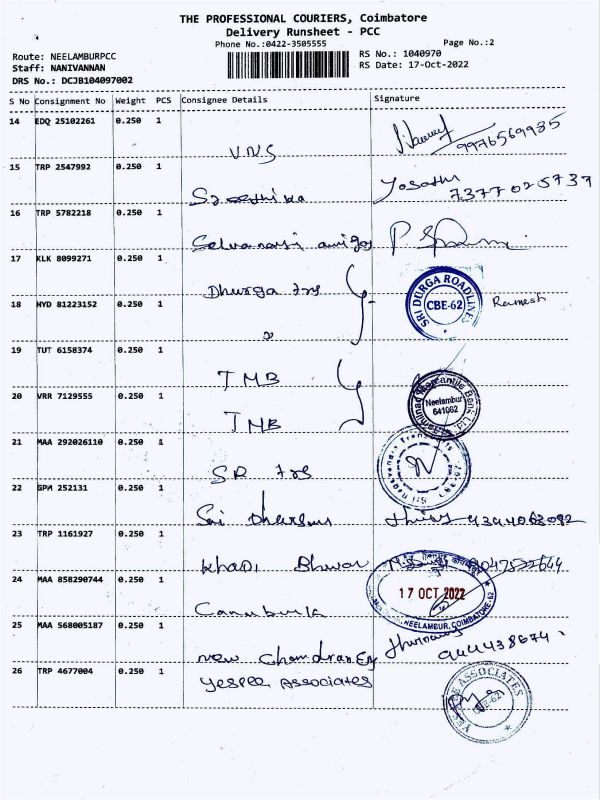 THE PROFESSIONAL COURIERS, Coimbatore
Delivery Runsheet - PCC
Phone No.:0422-3505555 Page No.:2
Route: NEELAMBURPCC RS No.: 1040970
Staff: NANIVANNAN RS Date: 17-Oct-2022
DRS No.: DCJB104097002
S No Consignment No Weight PCS Consignee Details Signature
14 EDQ 25102261 0.250 1
VNS 9976569985
15 TRP 2547992 0.250 1
7377025737
16 TRP 5782218 0.250 1
17 KLK 8099271 0.250 1
Dhurga trs
SRI DURGA ROADLINES
CBE-62
Ramesh
18 HYD 81223152 0.250 1
19 TUT 6158374 0.250 1
TMB
20 VRR 7129555 0.250 1
TMB
Tamilnad Mercantile Bank Ltd.
Neelambur
641062
21 MAA 292026110 0.250 1
SR trs
22 GPM 252131 0.250 1
Sai
23 TRP 1161927 0.250 1
khadi
24 MAA 858290744 0.250 1
17 OCT 2022
NEELAMBUR, COIMBATORE-62
25 MAA 568005187 0.250 1
new Chandran
26 TRP 4677004 0.250 1
Yespee Associates
YESPEE ASSOCIATES
CBE-62